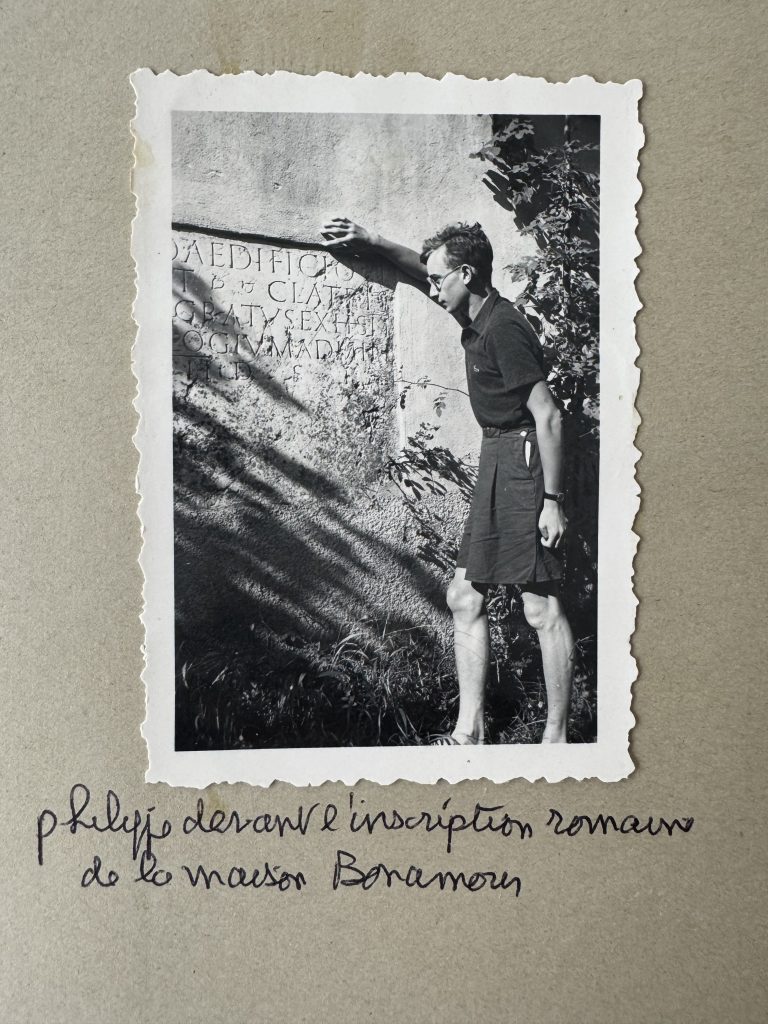 DAEDIFICIO
CLAT
GRATVSEX
OGIVMAD
philippe devant l'inscription romaine
de la maison Bonamour